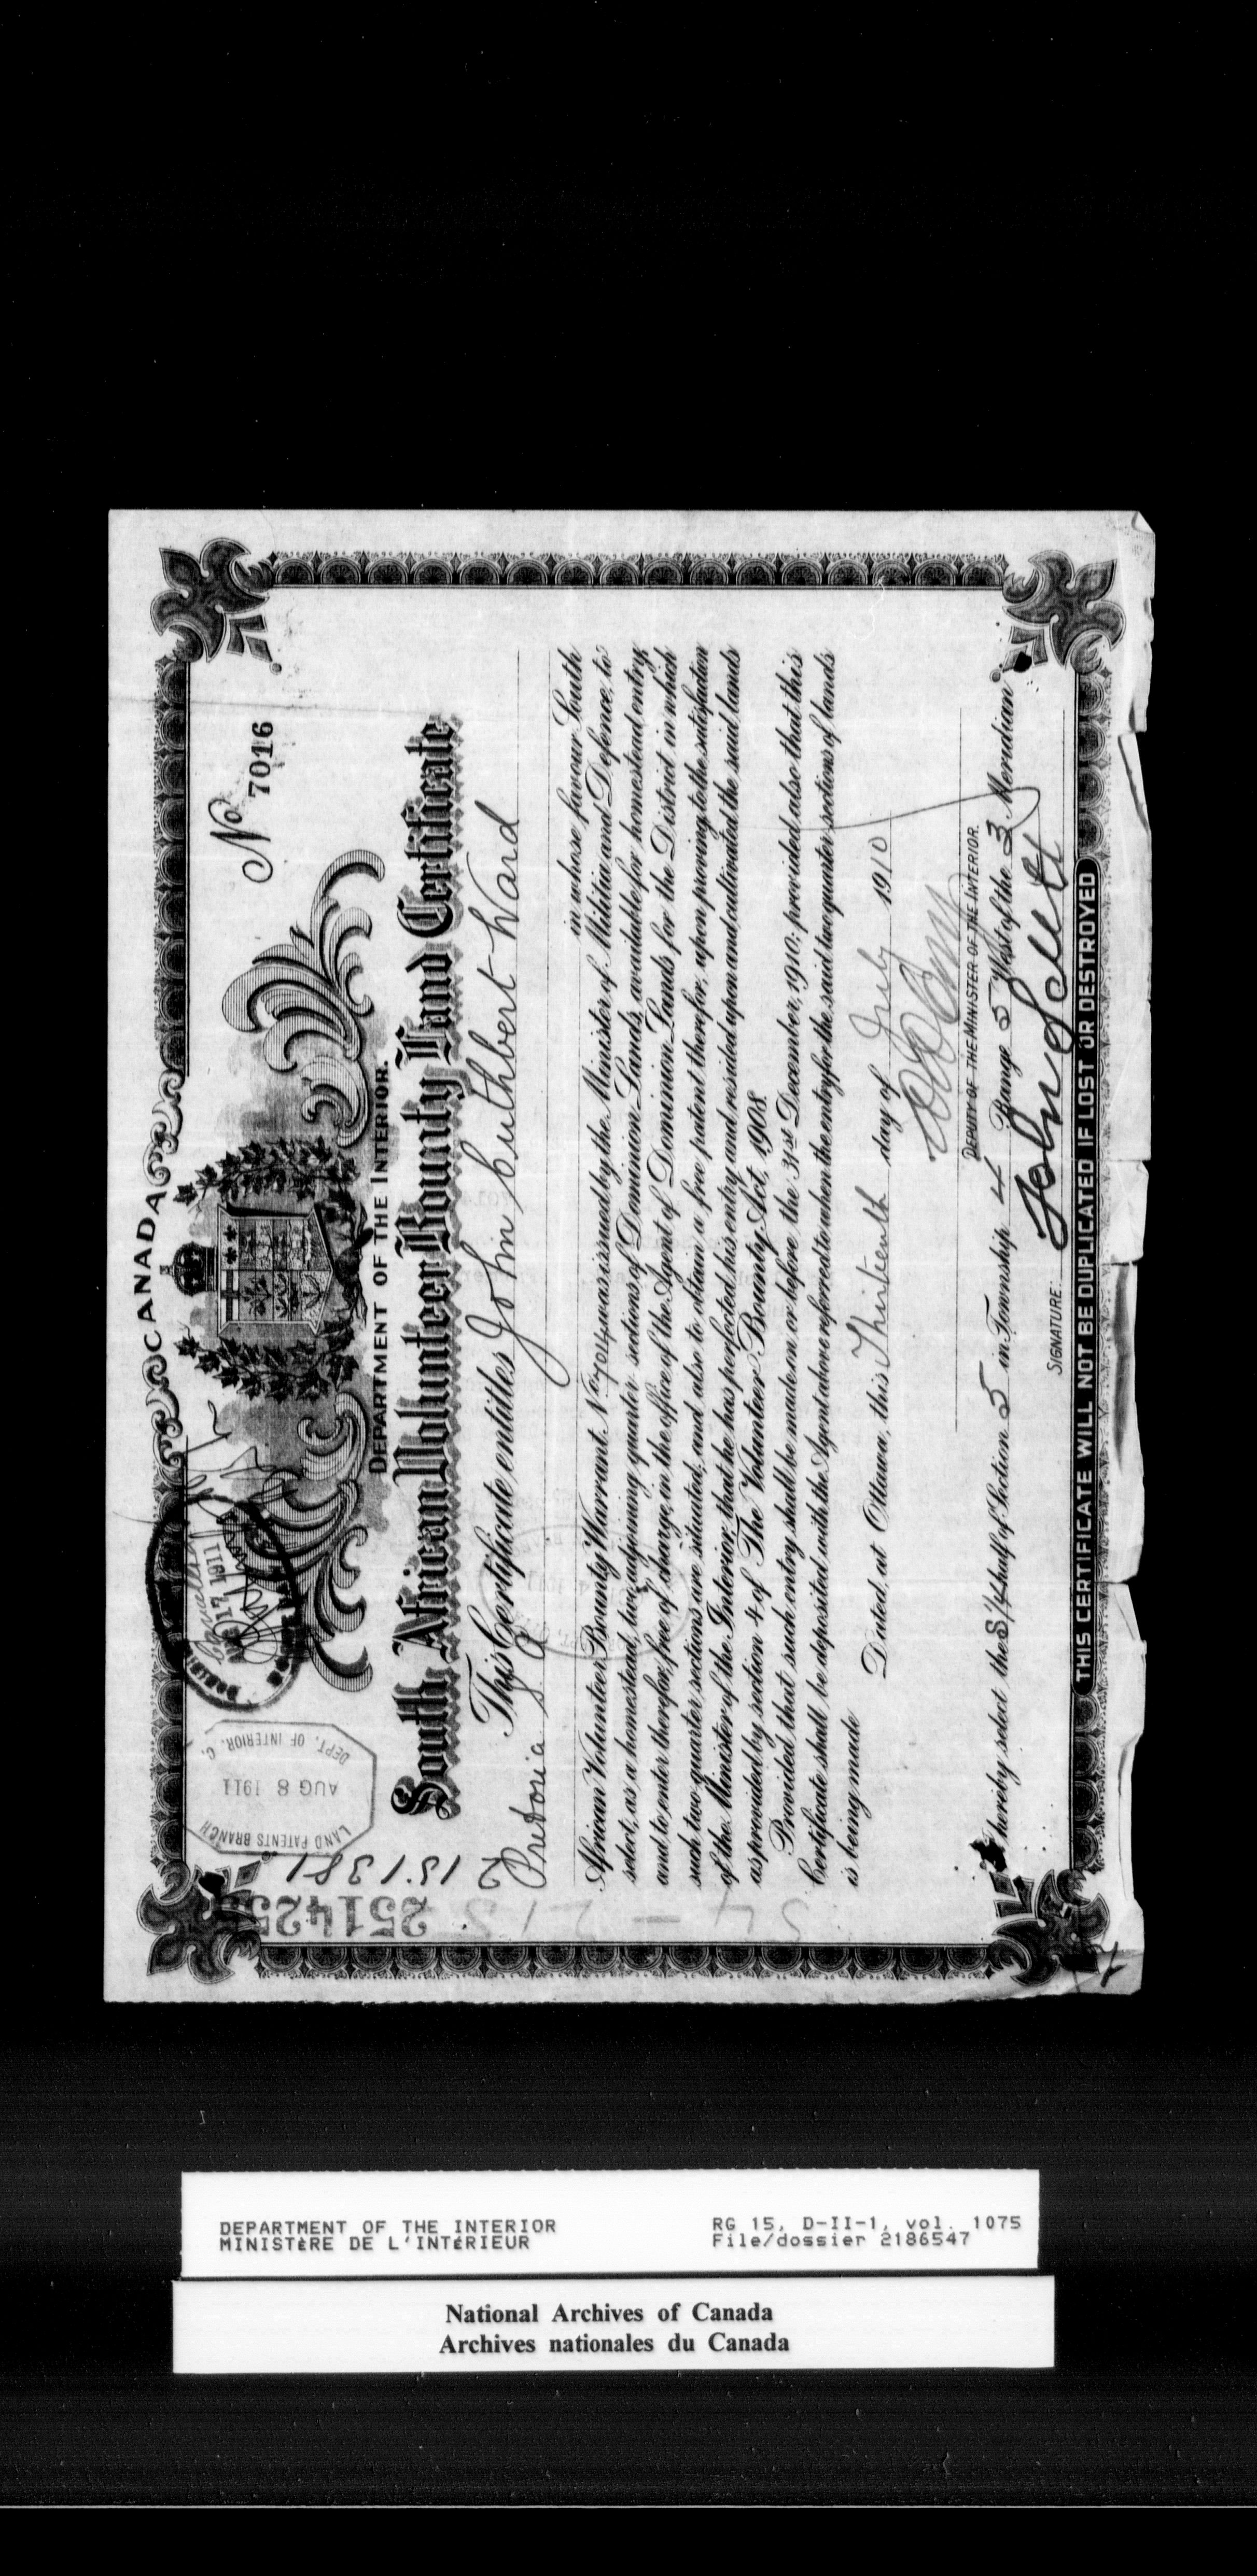 CANADA
Nº 7016
DEPARTMENT OF THE INTERIOR.
South African Volunteer Bounty Land Certificate
This Certificate entitles John Cuthbert Ward
Pretoria S.A.
in whose favour South
African Volunteer Bounty Warrant Nº 7014 was issued by the Minister of Militia and Defence, to
select, as a homestead, two adjoining quarter sections of Dominion Lands, available for homestead entry
and to enter therefor, free of charge, in the office of the Agent of Dominion Lands for the District in which
such two quarter sections are situated, and also to obtain a free patent therefor, upon proving to the satisfaction
of the Minister of the Interior, that he has perfected his entry and resided upon and cultivated the said lands
as provided by section 4 of The Volunteer Bounty Act, 1908.
Provided that such entry shall be made on or before the 31st December, 1910; provided also that this
Certificate shall be deposited with the Agent above referred to when the entry for the said two quarter sections of lands
is being made
Dated, at Ottawa, this Thirteenth day of July 1910
DEPUTY OF THE MINISTER OF THE INTERIOR.
I hereby select the S ½ half of Section 5 in Township 4 Range 5 West of the 3 Meridian
SIGNATURE:
THIS CERTIFICATE WILL NOT BE DUPLICATED IF LOST OR DESTROYED
LAND PATENTS BRANCH
AUG 8 1911
DEPT. OF INTERIOR. C.
251425
DEPARTMENT OF THE INTERIOR
MINISTÈRE DE L'INTÉRIEUR
RG 15, D-II-1, vol. 1075
File/dossier 2186547
National Archives of Canada
Archives nationales du Canada